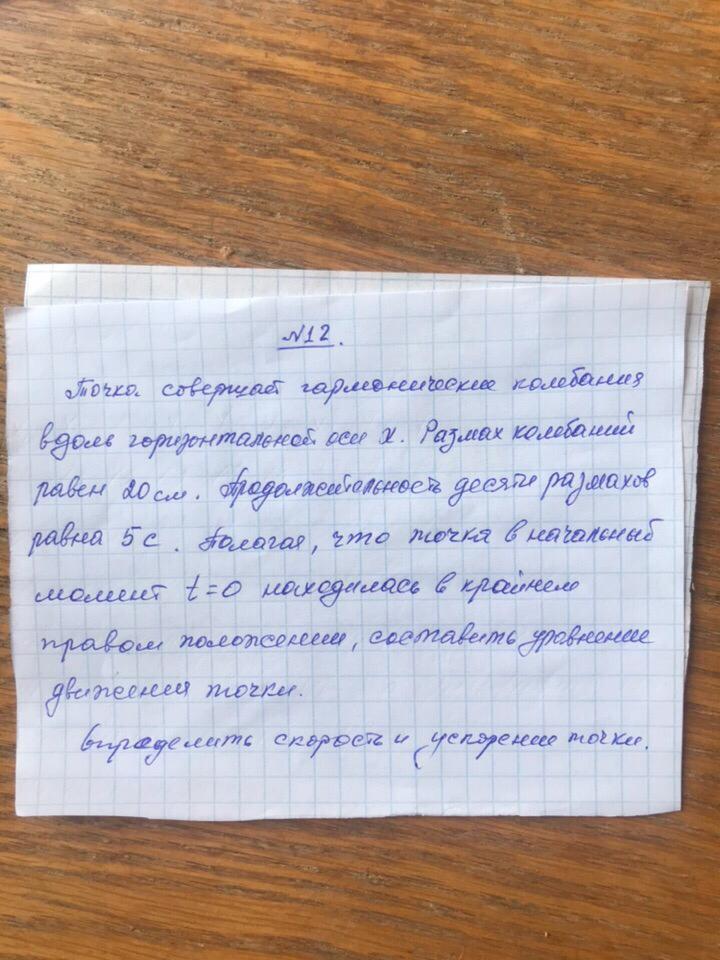 №12.
Точка совершает гармонические колебания
вдоль горизонтальной оси x. Размах колебаний
равен 20 см. Продолжительность десяти размахов
равна 5 с. Полагая, что точка в начальный
момент t=0 находилась в крайнем
правом положении, составить уравнение
движения точки.
Определить скорость и ускорение точки.